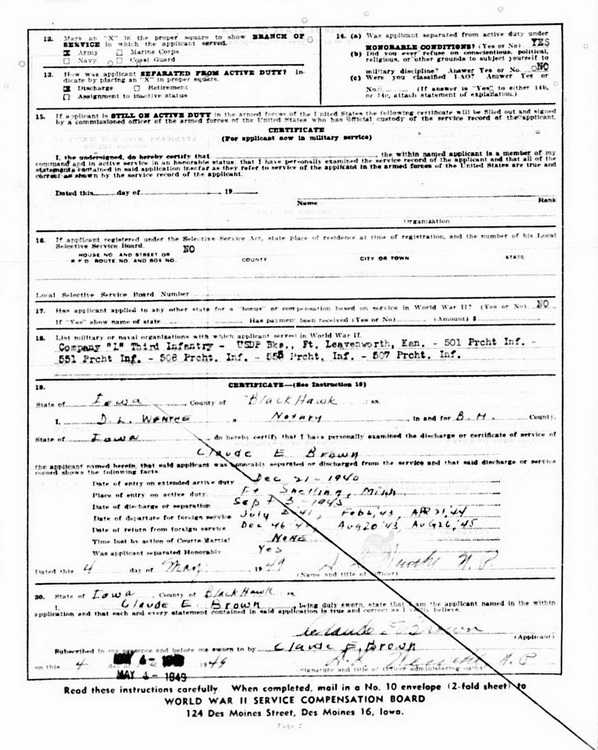 12. Mark an "X" in the proper square to show BRANCH OF
SERVICE in which the applicant served.
☒ Army ☐ Marine Corps
☐ Navy ☐ Coast Guard
13. How was applicant SEPARATED FROM ACTIVE DUTY? In-
dicate by placing an "X" in proper square.
☒ Discharge ☐ Retirement
☐ Assignment to inactive status
14. (a) Was applicant separated from active duty under
HONORABLE CONDITIONS? (Yes or No) YES
(b) Did you ever refuse on conscientious, political,
religious, or other grounds to subject yourself to
military discipline? Answer Yes or No NO
(c) Were you classified Answer Yes or
No (If answer is "Yes" to either 14b,
or 14c, attach statement of explanation.)
15. If applicant is STILL ON ACTIVE DUTY in the armed forces of the United States the following certificate will be filled out and signed
by a commissioned officer of the armed forces of the United States who has official custody of the service record of the applicant.
CERTIFICATE
(For applicant now in military service)
I, the undersigned, do hereby certify that the within named applicant is a member of my
command and in active service in an honorable status, that I have personally examined the service record of the applicant and that all of the
statements contained in said application insofar as they refer to service of the applicant in the armed forces of the United States are true and
correct as shown by the service record of the applicant.
Dated this day of 19
Name Rank
Organization
16. If applicant registered under the Selective Service Act, state place of residence at time of registration, and the number of his Local
Selective Service Board. NO
HOUSE NO. AND STREET OR
R F D ROUTE NO. AND BOX NO. COUNTY CITY OR TOWN STATE
Local Selective Service Board Number
17. Has applicant applied to any other state for a "bonus" or compensation based on service in World War II? (Yes or No) NO
If "Yes" show name of state Has payment been received (Yes or No) (Amount) $
18. List military or naval organizations with which applicant served in World War II.
Company "L" Third Infantry - USDP Bks., Ft. Leavenworth, Kan. - 501 Prcht Inf. -
551 Prcht Inf. - 506 Prcht. Inf. - Prcht. Inf. - 507 Prcht. Inf.
19. CERTIFICATE—(See Instruction 19)
State of Iowa, County of BlackHawk ss.
I, D. L. a Notary in and for B. H. County,
State of Iowa, do hereby certify that I have personally examined the discharge or certificate of service of
Claude E Brown
the applicant named herein, that said applicant was honorably separated or discharged from the service and that said discharge or service
record shows the following facts:
Date of entry on extended active duty Dec 21-1940
Place of entry on active duty Ft Snelling, Minn
Date of discharge or separation Sept 3-1945
Date of departure for foreign service July 41, Feb 43, APR 44
Date of return from foreign service Dec Aug 20 '43, Aug 26, '45
Time lost by action of Courts Martial None
Was applicant separated Honorably Yes
Dated this 4 day of May 1949 N. P.
(Name and title of
20. State of Iowa County of BlackHawk ss
I, Claude E. Brown, being duly sworn, state that I am the applicant named in the within
application and that each and every statement contained in said application is true and correct as I verily believe.
Claude E. Brown
(Applicant)
Subscribed in my presence and before me sworn to by Claude E. Brown
on this 4 1949 N. P.
MAY 4- 1949
Signature and title of officer administering oath
Read these instructions carefully. When completed, mail in a No. 10 envelope (2-fold sheet) to
WORLD WAR II SERVICE COMPENSATION BOARD
124 Des Moines Street, Des Moines 16, Iowa.